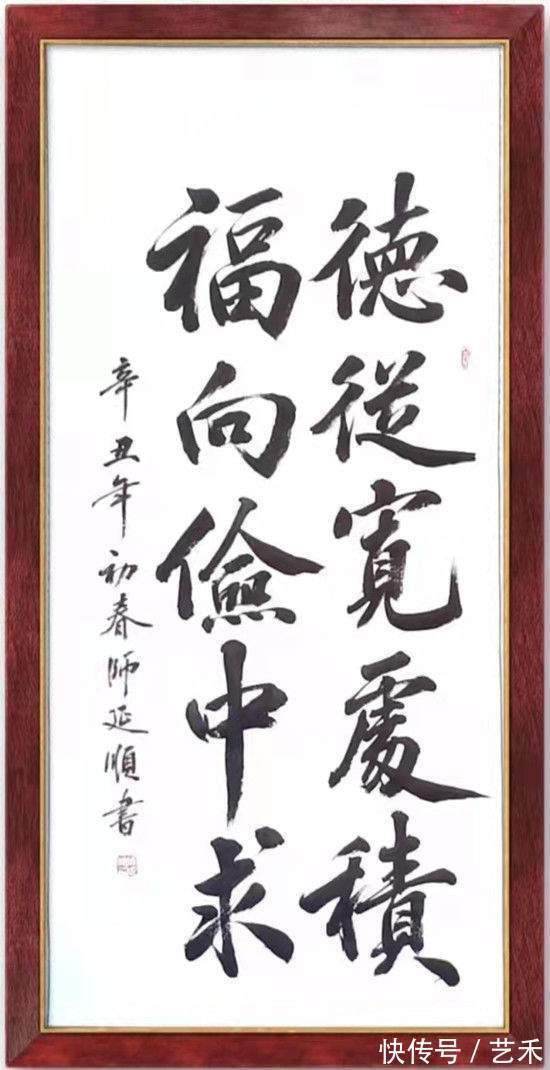 德從寬處積
福向儉中求
辛丑年初春師延順書
快传号 / 艺禾